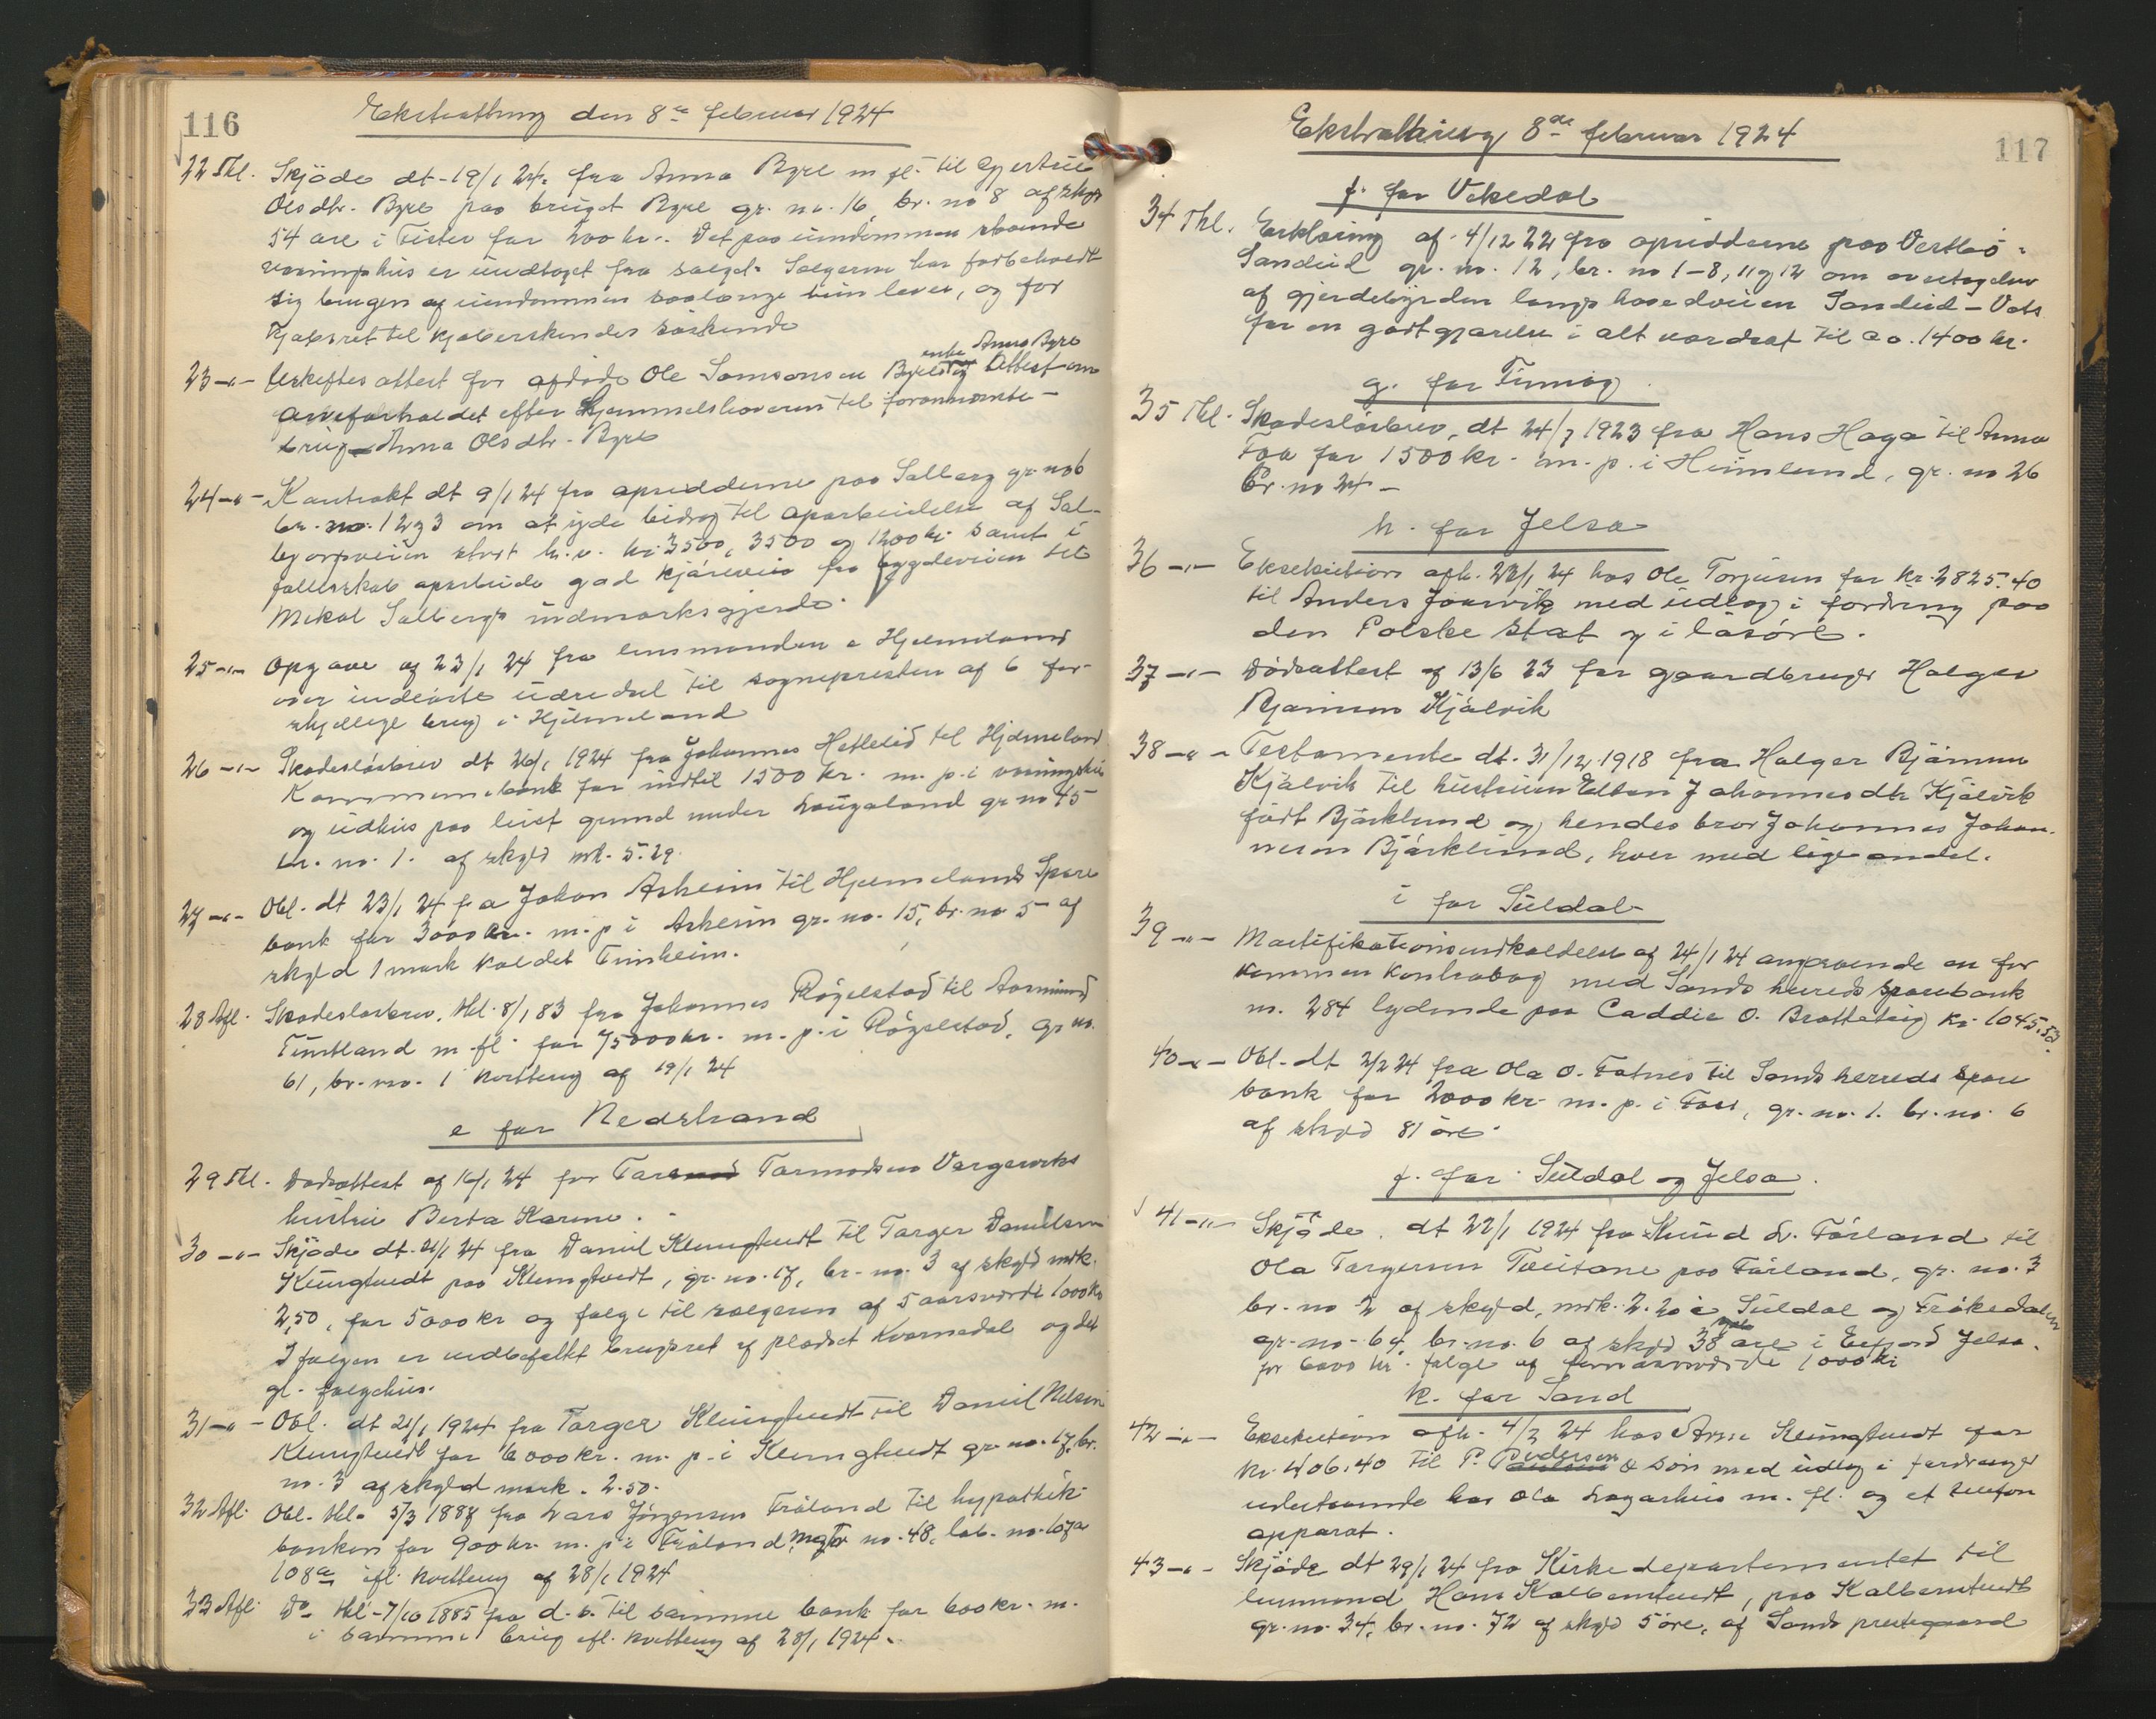 116
Ekstratting den 8de februar 1924
22 Thl. Skjöde dt. 19/1 24. fra Anna Byre m fl. til Gjertrue
Olsdtr. Byre paa bruget Byre gr. no. 16, br. no 8 af skyd
54 øre i Fister for 200 kr. Det paa eiendommen staaende
vaaningshus er undtaget fra salget. Sælgeren har forbeholdt
sig brugen af eiendommen saalænge hun lever, og for
kjøbsret til kjøberskendes søskende
23 -"- Uskiftesattest for afdøde Ole Samsonsen Byres enke Anna Byre og Attest om
arveforholdet efter hjemmelshaveren til forannævnte
brug Anna Olsdtr. Byre
24 -"- Kontrakt dt 9/1 24 fra opsidderne paa Salberg gr. no 6
br. no. 1 2 g 3 om at yde bidrag til oparbeidelse af Sal-
bergsveien stort h.v. kr. 3500, 3500 og 1200 kr. samt i
fællesskab oparbeide god kjørevei fra bygdeveien til
Mikal Salbergs indmarksgjerde.
25 -"- Opgave af 23/1 24 fra lensmanden i Hjelmeland
over indløste udredsel til sognepresten af 6 for-
skjellige brug i Hjelmeland
26 -"- Skadesløsbrev dt 26/1 1924 fra Johannes Hetlelid til Hjelmeland
Kommunebank for indtil 1500 kr. m. p. i vaaningshus
og udhus paa leiet grund under Laugaland gr no 45
br. no. 1. af skyld mk. 5.29.
27 -"- Obl. dt 23/1 24 fra Johan Askeim til Hjelmelands Spare
bank for 3000 kr. m. p i Askeim gr. no. 15, br. no 5 af
skyld 1 mark kaldet Tunheim.
28 Afl. Skadesløsbrev, thl. 8/1 83 fra Johannes Røgelstad til Aasmund
Tuntland m. fl. for 75000 kr. m. p. i Røgelstad, gr no.
61, br. no. 1 kvittering af 19/1 24
e for Nedstrand
29 Thl. Dødsattest af 16/1 24 for Tarmodsen Vargeviks
hustru Berta Karine.
30 -"- Skjöde dt. 21/1 24 fra Daniel Klungtvedt til Targer Danielsen
Klungtvedt paa Klungtvedt, gr. no. 17, br. no. 3 af skyld mrk.
2,50, for 5000 kr og følge til sælgeren af 5 aarsværdi 1000 kr
I følgen er indbefattet brugsret af pladset Kvarnedal og det
gl. følgehus.
31 -"- Obl. dt 21/1 1924 fra Targer Klungtvedt til Daniel Nilsen
Klungtvedt for 6000 kr. m. p. i Klungtvedt gr. no. 17, br.
no. 3 af skyld mark. 2.50.
32 Afl. Obl. thl. 5/3 1888 fra Lars Jörgensen Fröland til hypothek-
banken for 900 kr. m. p. i Fröland, mgtr no. 48, løb. no. 107a
108a ifl. kvittering af 28/1 1924
33 Afl. Do. thl. 7/10 1885 fra d. s. til samme bank for 600 kr. m.
i samme brug ifl. kvittering af 28/1 1924.
117
Ekstratting 8de februar 1924
f. for Vikedal
34 Thl. Erklæring af 4/12 22 fra opsidderne paa Vestbø-
Sandeid gr. no. 12, br. no 1-8, 11 og 12 om overtagelse
af gjerdebyrden langs hovedveien Sandeid - Vats
for en godtgjørelse i alt vordsat til ca. 1400 kr.
g. for Imsland
35 Thl. Skadesløsbrev, dt 24/7 1923 fra Hans Haga til Anna
Foa for 1500 kr. m. p. i Heimlund, gr. no 26
br. no 24 -
h. for Jelsa
36 -"- Eksekution afh. 22/1 24 hos Ole Torjusen for kr. 2825.40
til Anders Jonsvik med udlæg i fordring paa
den Polske Stat og i løsøre.
37 -"- Dødsattest af 13/6 23 for gaardbruger Holger
Bjørnsen Kjølvik
38 -"- Testamente dt. 31/12 1918 fra Holger Bjørnsen
Kjølvik til hustruen Ellen Johannesdtr Kjølvik
født Bjørklund og hendes bror Johannes Johan-
nesen Bjørklund, hver med lige andel.
i for Suldal
39 -"- Mortifikationsindkaldelse af 24/1 24 angaaende en for
kommen kontrabog med Sands herreds sparebank
no. 284 lydende paa Caddie O. Bratteteig kr. 1045,52.
40 -"- Obl. dt 2/2 24 fra Ola O. Fatnes til Sands herreds spare
bank for 2000 kr. m. p. i Foss, gr. no. 1. br. no. 6
af skyld 81 øre.
j. for Suldal og Jelsa.
41 -"- Skjöde, dt 22/1 1924 fra Knud L. Førland til
Ola Targersen Tveitane paa Førland, gr. no. 3
br. no 2 af skyld, mrk. 2.20 i Suldal og Frøkedalen
gr. no. 64 br. no. 6 af skyld 38 øre i Erfjord Jelsa.
for 6000 kr. følge af femaarsværdi 1000 kr
k. for Sand
42 -"- Eksekution afh. 4/2 24 hos Arne Klungtvedt for
kr. 406.40 til P. Pedersen & Søn med udlæg i fordringer
udestaaende hos Ola Lagarhus m. fl. og et telefon
apparat.
43 -"- Skjøde dt 29/1 24 fra Kirkedepartementet til
lensmand Hans Kalbemtvedt, paa Kalbemtvedt
gr. no. 34, br. no. 72 af skyld 5 øre, af Sands prestegaard